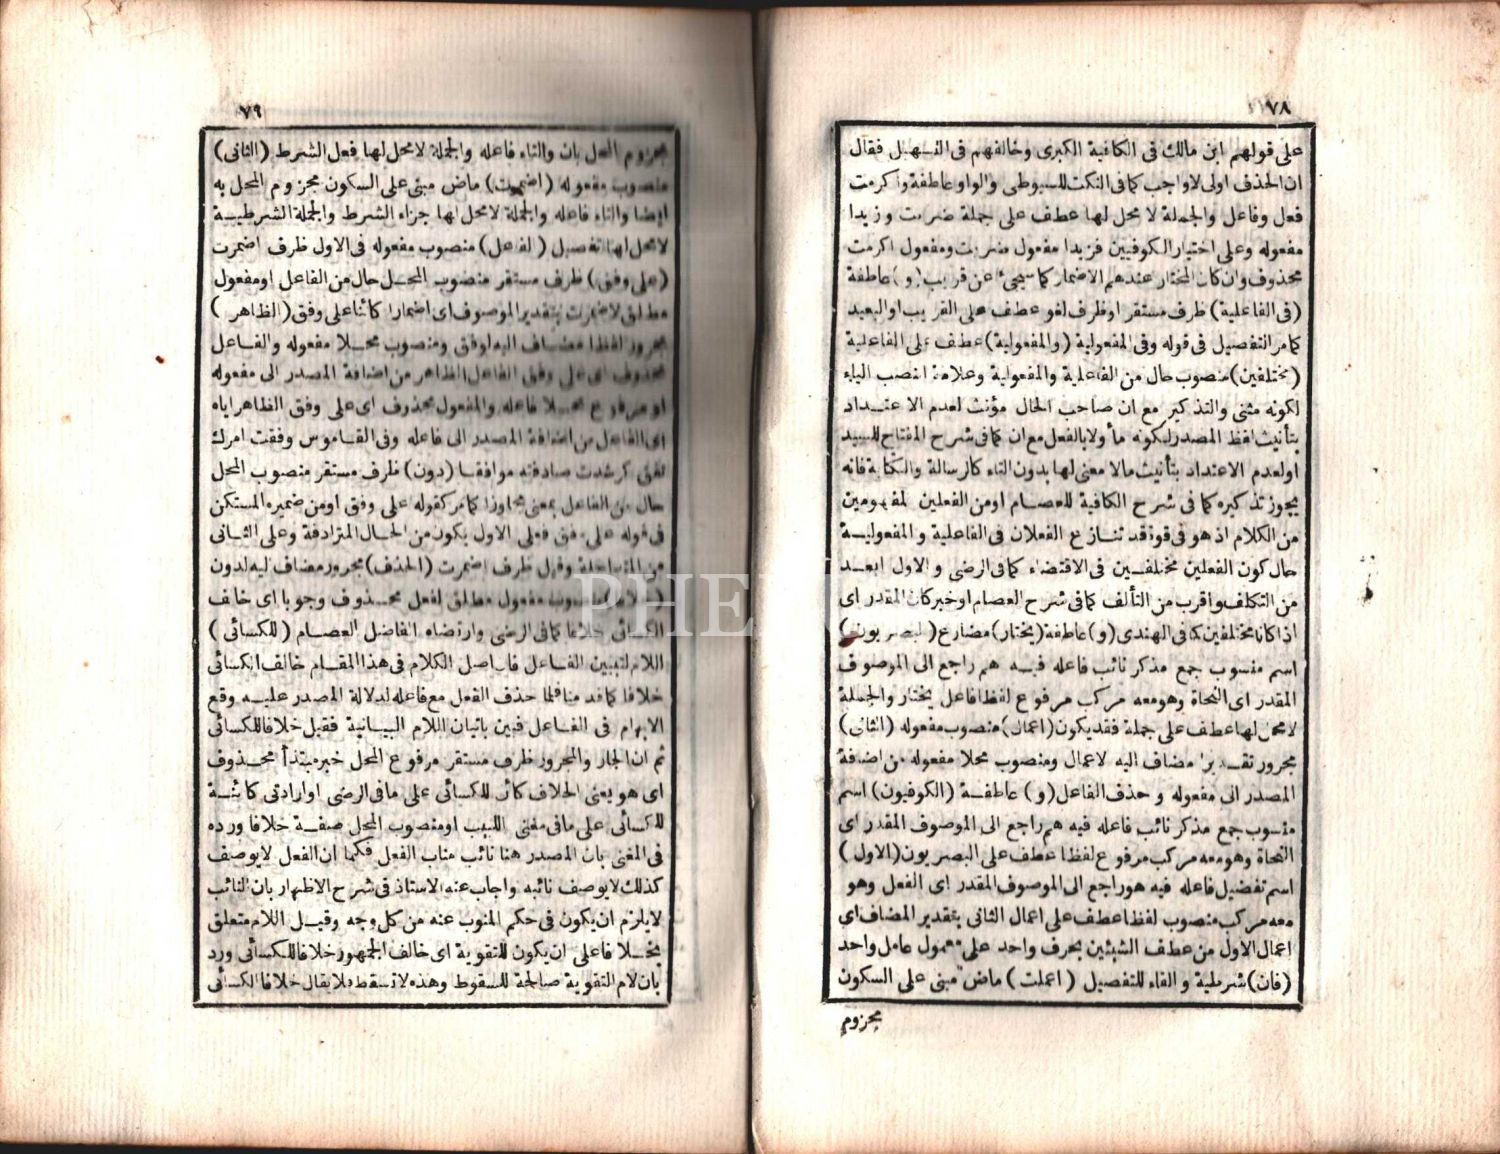 ٧٨
على قولهم ابن مالك فى الكافية الكبرى وخالفهم فى التسهيل فقال
ان الحذف اولى لاواجب كما فى النكت للسيوطى والواو عاطفة واكرمت
فعل وفاعل والجملة لا محل لها عطف على جملة ضربت وزيدا
مفعوله وعلى اختيار الكوفيين فزيدا مفعول ضربت ومفعول اكرمت
محذوف وان كان المختار عندهم الاضمار كما سيجئ عن قريب (و) عاطفة
(فى الفاعلية) ظرف مستقر اوظرف لغو عطف على القريب اوالبعيد
كما مر التفصيل فى قوله وفى المفعولية (والمفعولية) عطف على الفاعلية
(مختلفين) منصوب حال من الفاعلية والمفعولية وعلامة النصب الياء
لكونه مثنى والتذكير مع ان صاحب الحال مؤنث لعدم الاعتداد
بتأنيث لفظ المصدر لكونه مأولا بالفعل مع ان كما فى شرح المفتاح للسيد
اولعدم الاعتداد بتأنيث مالا معنى لها بدون التاء كالرسالة والكتابة فانه
يجوز تذكيره كما فى شرح الكافية للعصام اومن الفعلين المفهومين
من الكلام اذ هو فى قوة قد تنازع الفعلان فى الفاعلية والمفعولية
حال كون الفعلين مختلفين فى الاقتضاء كما فى الرضى والاول ابعد
من التكلف واقرب من التألف كما فى شرح العصام اوخبر كان المقدر اى
اذا كانا مختلفين كما فى الهندى (و) عاطفة (يختار) مضارع (البصريون)
اسم منسوب جمع مذكر نائب فاعله فيه هم راجع الى الموصوف
المقدر اى النحاة وهو معه مركب مرفوع لفظا فاعل يختار والجملة
لا محل لها عطف على جملة فقد يكون (اعمال) منصوب مفعوله (الثانى)
مجرور تقديرا مضاف اليه لاعمال ومنصوب محلا مفعوله من اضافة
المصدر الى مفعوله وحذف الفاعل (و) عاطفة (الكوفيون) اسم
منسوب جمع مذكر نائب فاعله فيه هم راجع الى الموصوف المقدر اى
النحاة وهو معه مركب مرفوع لفظا عطف على البصريون (الاول)
اسم تفضيل فاعله فيه هو راجع الى الموصوف المقدر اى الفعل وهو
معه مركب منصوب لفظا عطف على اعمال الثانى بتقدير المضاف اى
اعمال الاول من عطف الشيئين بحرف واحد على معمول عامل واحد
(فان) شرطية والفاء للتفصيل (اعملت) ماض مبنى على السكون
مجزوم
٧٩
مجزوم المحل بان والتاء فاعله والجملة لا محل لها فعل الشرط (الثانى)
منصوب مفعوله (اضمرت) ماض مبنى على السكون مجزوم المحل به
ايضا والتاء فاعله والجملة لا محل لها جزاء الشرط والجملة الشرطية
لا محل لها تفصيل (الفاعل) منصوب مفعوله فى الاول ظرف اضمرت
(على وفق) ظرف مستقر منصوب المحل حال من الفاعل اومفعول
مطلق لاضمرت بتقدير الموصوف اى اضمارا كائنا على وفق (الظاهر)
مجرور لفظا مضاف اليه لوفق ومنصوب محلا مفعوله والفاعل
محذوف اى على وفق الفاعل الظاهر من اضافة المصدر الى مفعوله
او مرفوع محلا فاعله والمفعول محذوف اى على وفق الظاهر اياه
اى الفاعل من اضافة المصدر الى فاعله وفى القاموس وفقت امرك
تفق كرشدت صادفته موافقا (دون) ظرف مستقر منصوب المحل
حال من الفاعل بمعنى مجاوزا كما مر كقوله على وفق اومن ضميره المستكن
فى قوله على وفق فعلى الاول يكون من الحال المترادفة وعلى الثانى
من المتداخلة وقيل ظرف اضمرت (الحذف) مجرور مضاف اليه لدون
(خلافا) منصوب مفعول مطلق لفعل محذوف وجوبا اى خالف
الكسائى خلافا كما فى الرضى وارتضاه الفاضل العصام (للكسائى)
اللام لتبيين الفاعل فاصل الكلام فى هذا المقام خالف الكسائى
خلافا كما قدمنا فلما حذف الفعل مع فاعله لدلالة المصدر عليه وقع
الابهام فى الفاعل فبين باتيان اللام البيانية فقيل خلافا للكسائى
ثم ان الجار والمجرور ظرف مستقر مرفوع المحل خبر مبتدأ محذوف
اى هو يعنى الخلاف كائن للكسائى على ما فى الرضى اوارادتى كائنة
للكسائى على ما فى مغنى اللبيب اومنصوب المحل صفة خلافا ورده
فى المغنى بان المصدر هنا نائب مناب الفعل فكما ان الفعل لايوصف
كذلك لايوصف نائبه واجاب عنه الاستاذ فى شرح الاظهار بان النائب
لايلزم ان يكون فى حكم المنوب عنه من كل وجه وقيل اللام متعلق
بخلافا على ان يكون للتقوية اى خالف الجمهور خلافا للكسائى ورد
بان لام التقوية صالحة للسقوط وهذه لاتسقط فلايقال خلافا الكسائى